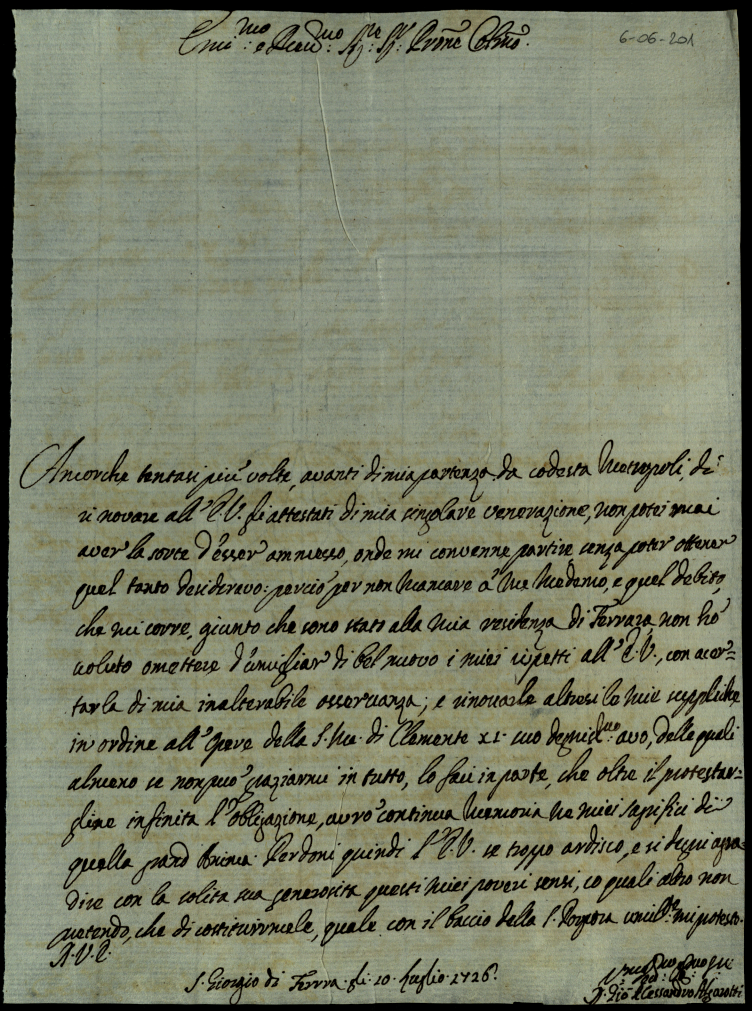 Emi.mo e Reu.mo Sig.re Sig.r Prōne Colmo.
6-06-201
Ancorche tentasi più volte, avanti di mia partenza da codesta Metropoli, di
rinovare all'E.V. gli attestati di mia singolare venerazione, non potei mai
aver la sorte d'esser ammesso, onde mi convenne partire senza poter ottener
quel tanto desideravo: perciò per non mancare à me medemo, e quel debito,
che mi corre, giunto che sono stato alla mia residenza di Ferrara non hò
voluto omettere d'umigliar di bel nuovo i miei rispetti all'E.V., con acer=
tarla di mia inalterabile osservanza; e rinovarle altresi le mie suppliche
in ordine all'Opere della S. Me. di Clemente XI. suo degnis.mo avo, delle quali
almeno se non può graziarmi in tutto, lo faci in parte, che oltre il protestar=
gliene infinita l'obligazione, avrò continua memoria ne miei sagrifici di
quella grand Anima. Perdoni quindi l'E.V. se troppo ardisco, e si degni agra=
dire con la solita sua generosita questi miei poveri sensi, co quali altro non
pretendo, che di costituirmele, quale con il baccio della S. Porpora umil.te mi protesto.
A. V. E.
S. Giorgio di Ferrra. li 10. Luglio 1726.
D. Gio. Alessandro Algarotti